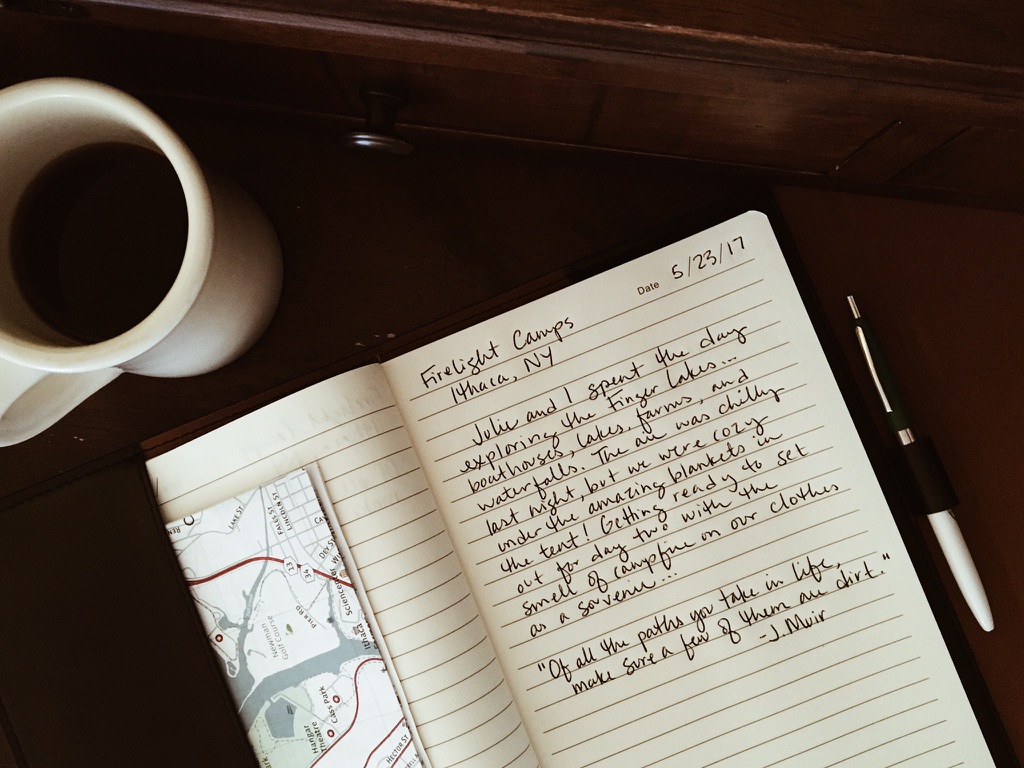 Date 5/23/17
Firelight Camps
Ithaca, NY
Julie and I spent the day
exploring the Finger Lakes...
boathouses, lakes, farms, and
waterfalls. The air was chilly
last night, but we were cozy
under the amazing blankets in
the tent! Getting ready to set
out for day two with the
smell of campfire on our clothes
as a sovenir...
"Of all the paths you take in life,
make sure a few of them are dirt."
-J. Muir
LAKE ST
FALLS ST
LINCOLN ST
13
34
DEY ST
PIER RD
Newman
Golf Course
Cass Park
Hangar
Theatre
HECTOR ST